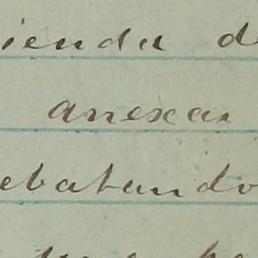 ienda d
anexar
ebatando